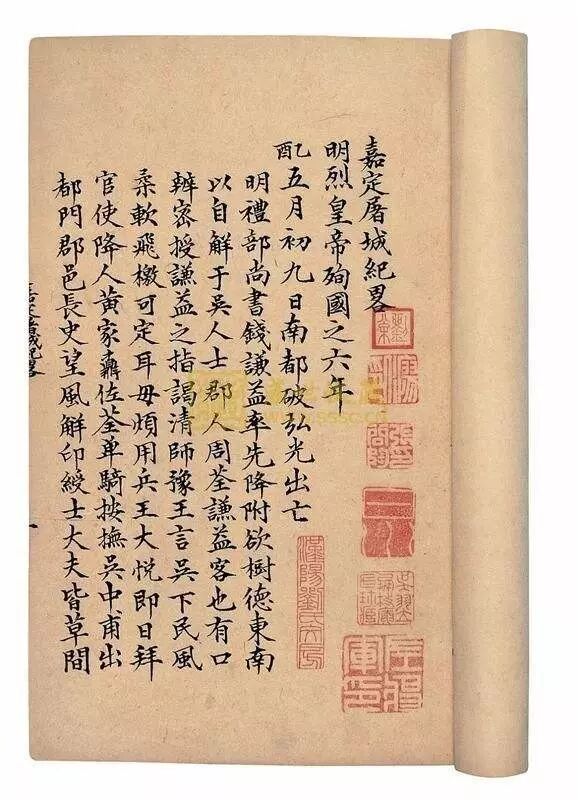 嘉定屠城紀畧
明烈皇帝殉國之六年
配五月初九日南都破弘光出亡
明禮部尚書錢謙益率先降附欲樹德東南
以自解于吳人士郡人周荃謙益客也有口
辨密授謙益之指謁清師豫王言吳下民風
柔軟飛檄可定耳毋煩用兵王大悅即日拜
官使降人黃家鼒佐荃单騎按撫吳中甫出
都門郡邑長史望風解印綬士大夫皆草間
嘉定屠城紀畧
一